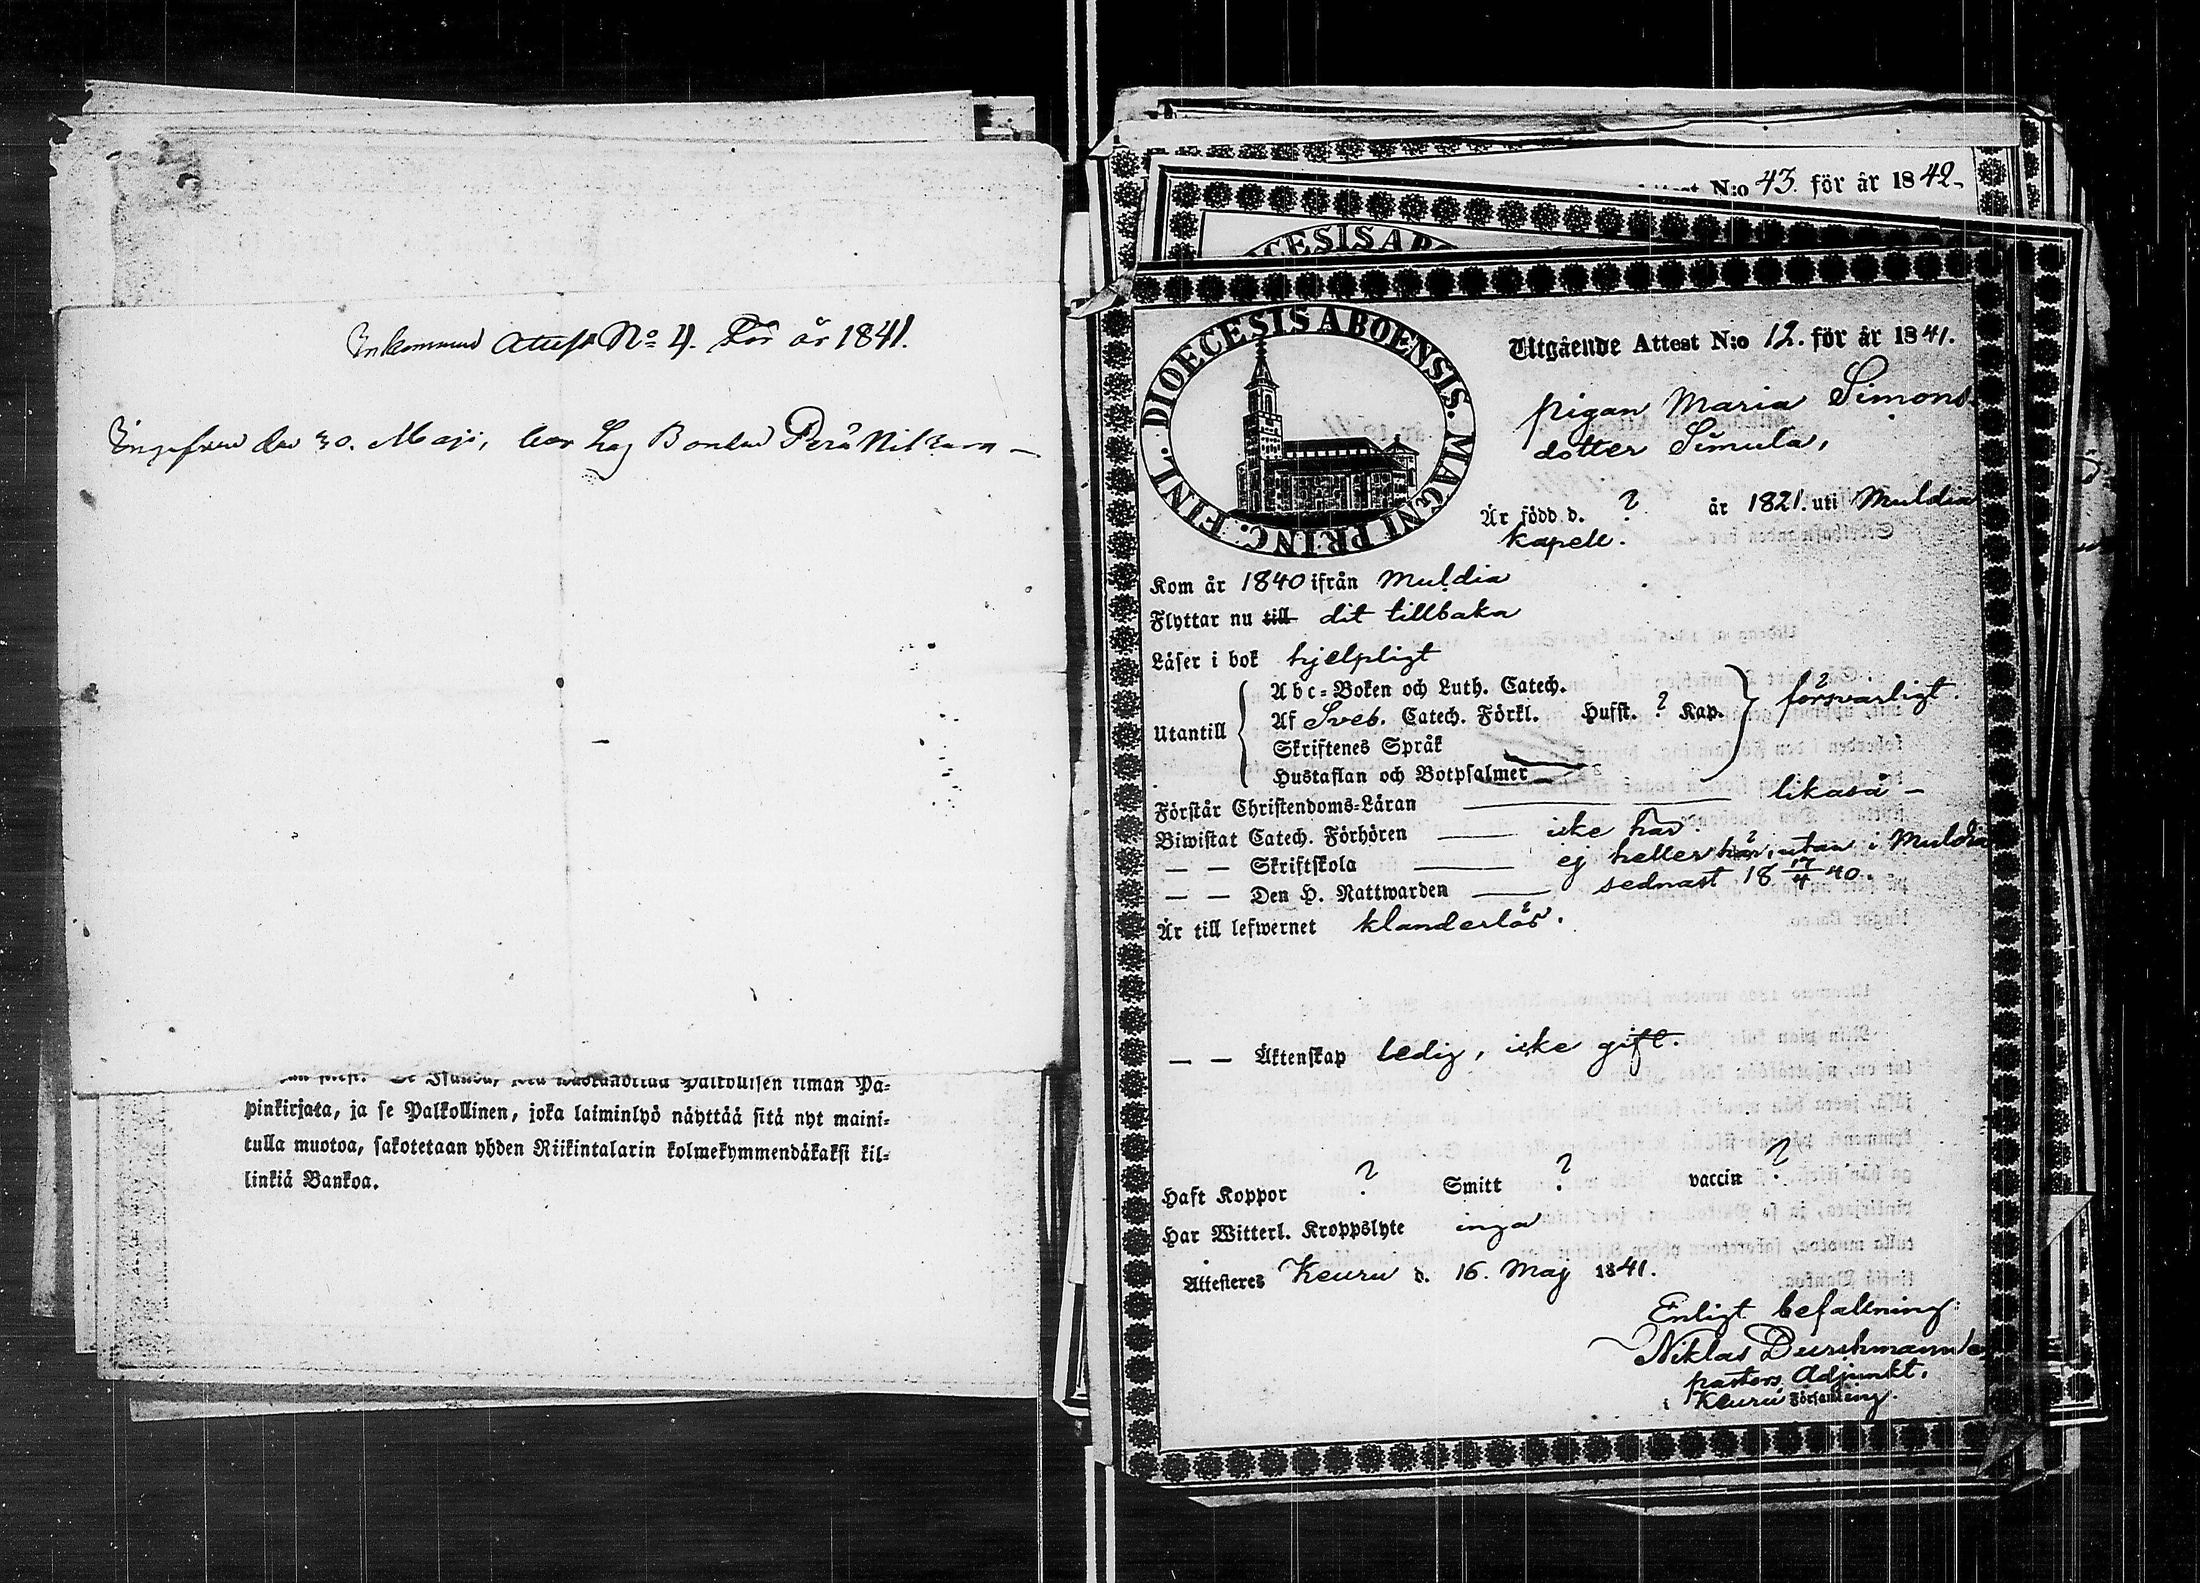 Inkommen Attest No 4. För år 1841.
den 30. Maji, Bonden
pinkirjata, ja se Palkollinen, joka laiminlyö näyttää sitä nyt maini-
tulla muotoa, sakotetaan yhden Riikintalarin kolmekymmendäkaksi kil-
linkiä Bankoa.
Attest N:o 43. för år 1842.
DIOECESIS ABOENSIS. MAGNI PRINC. FINL.
Utgående Attest N:o 12. för år 1841.
pigan Maria Simons
dotter Simula,
Är född d. ? år 1821. uti Muldia
Kapell.
Kom år 1840 ifrån Muldia
Flyttar nu till dit tillbaka
Läser i bok hjelpligt
Utantill
Abc-Boken och Luth. Catech.
Af Sveb. Catech. Förkl. Husst. ? Kap. försvarligt.
Skriftenes Språk
Hustaflan och Botpsalmer
Förstår Christendoms-Läran likaså –
Biwistat Catech. Förhören icke här.
— — Skriftskola ej heller här, utan i Muldia
— — Den H. Nattwarden sednast 18 17/4 40.
Är till lefwernet klanderlös.
— — Äktenskap ledig, icke gift.
Haft Koppor ? Smitt ? vaccin ?
Har Witterl. Kroppslyte inga
Attesteres Keuru d. 16. Maj 1841.
Enligt befallning:
Niklas
pastors Adjunkt.
i Keuru Församling.